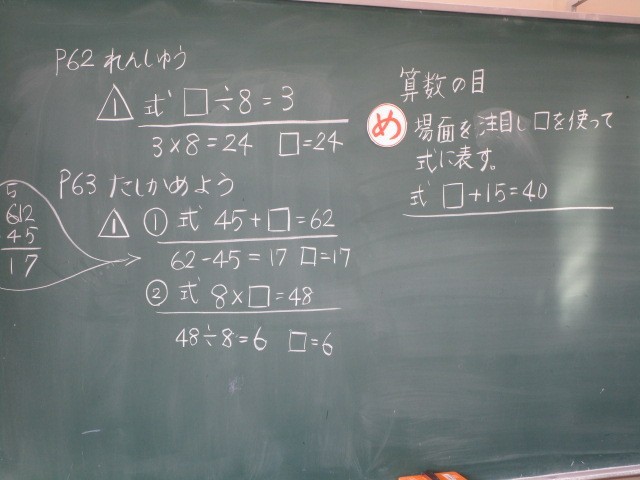 P62 れんしゅう
1 式 □÷8=3
3×8=24 □=24
P63 たしかめよう
1 ① 式 45+□=62
62-45=17 □=17
② 式 8×□=48
48÷8=6 □=6
5
612
45
17
算数の目
め 場面を注目し□を使って
式に表す。
式 □+15=40